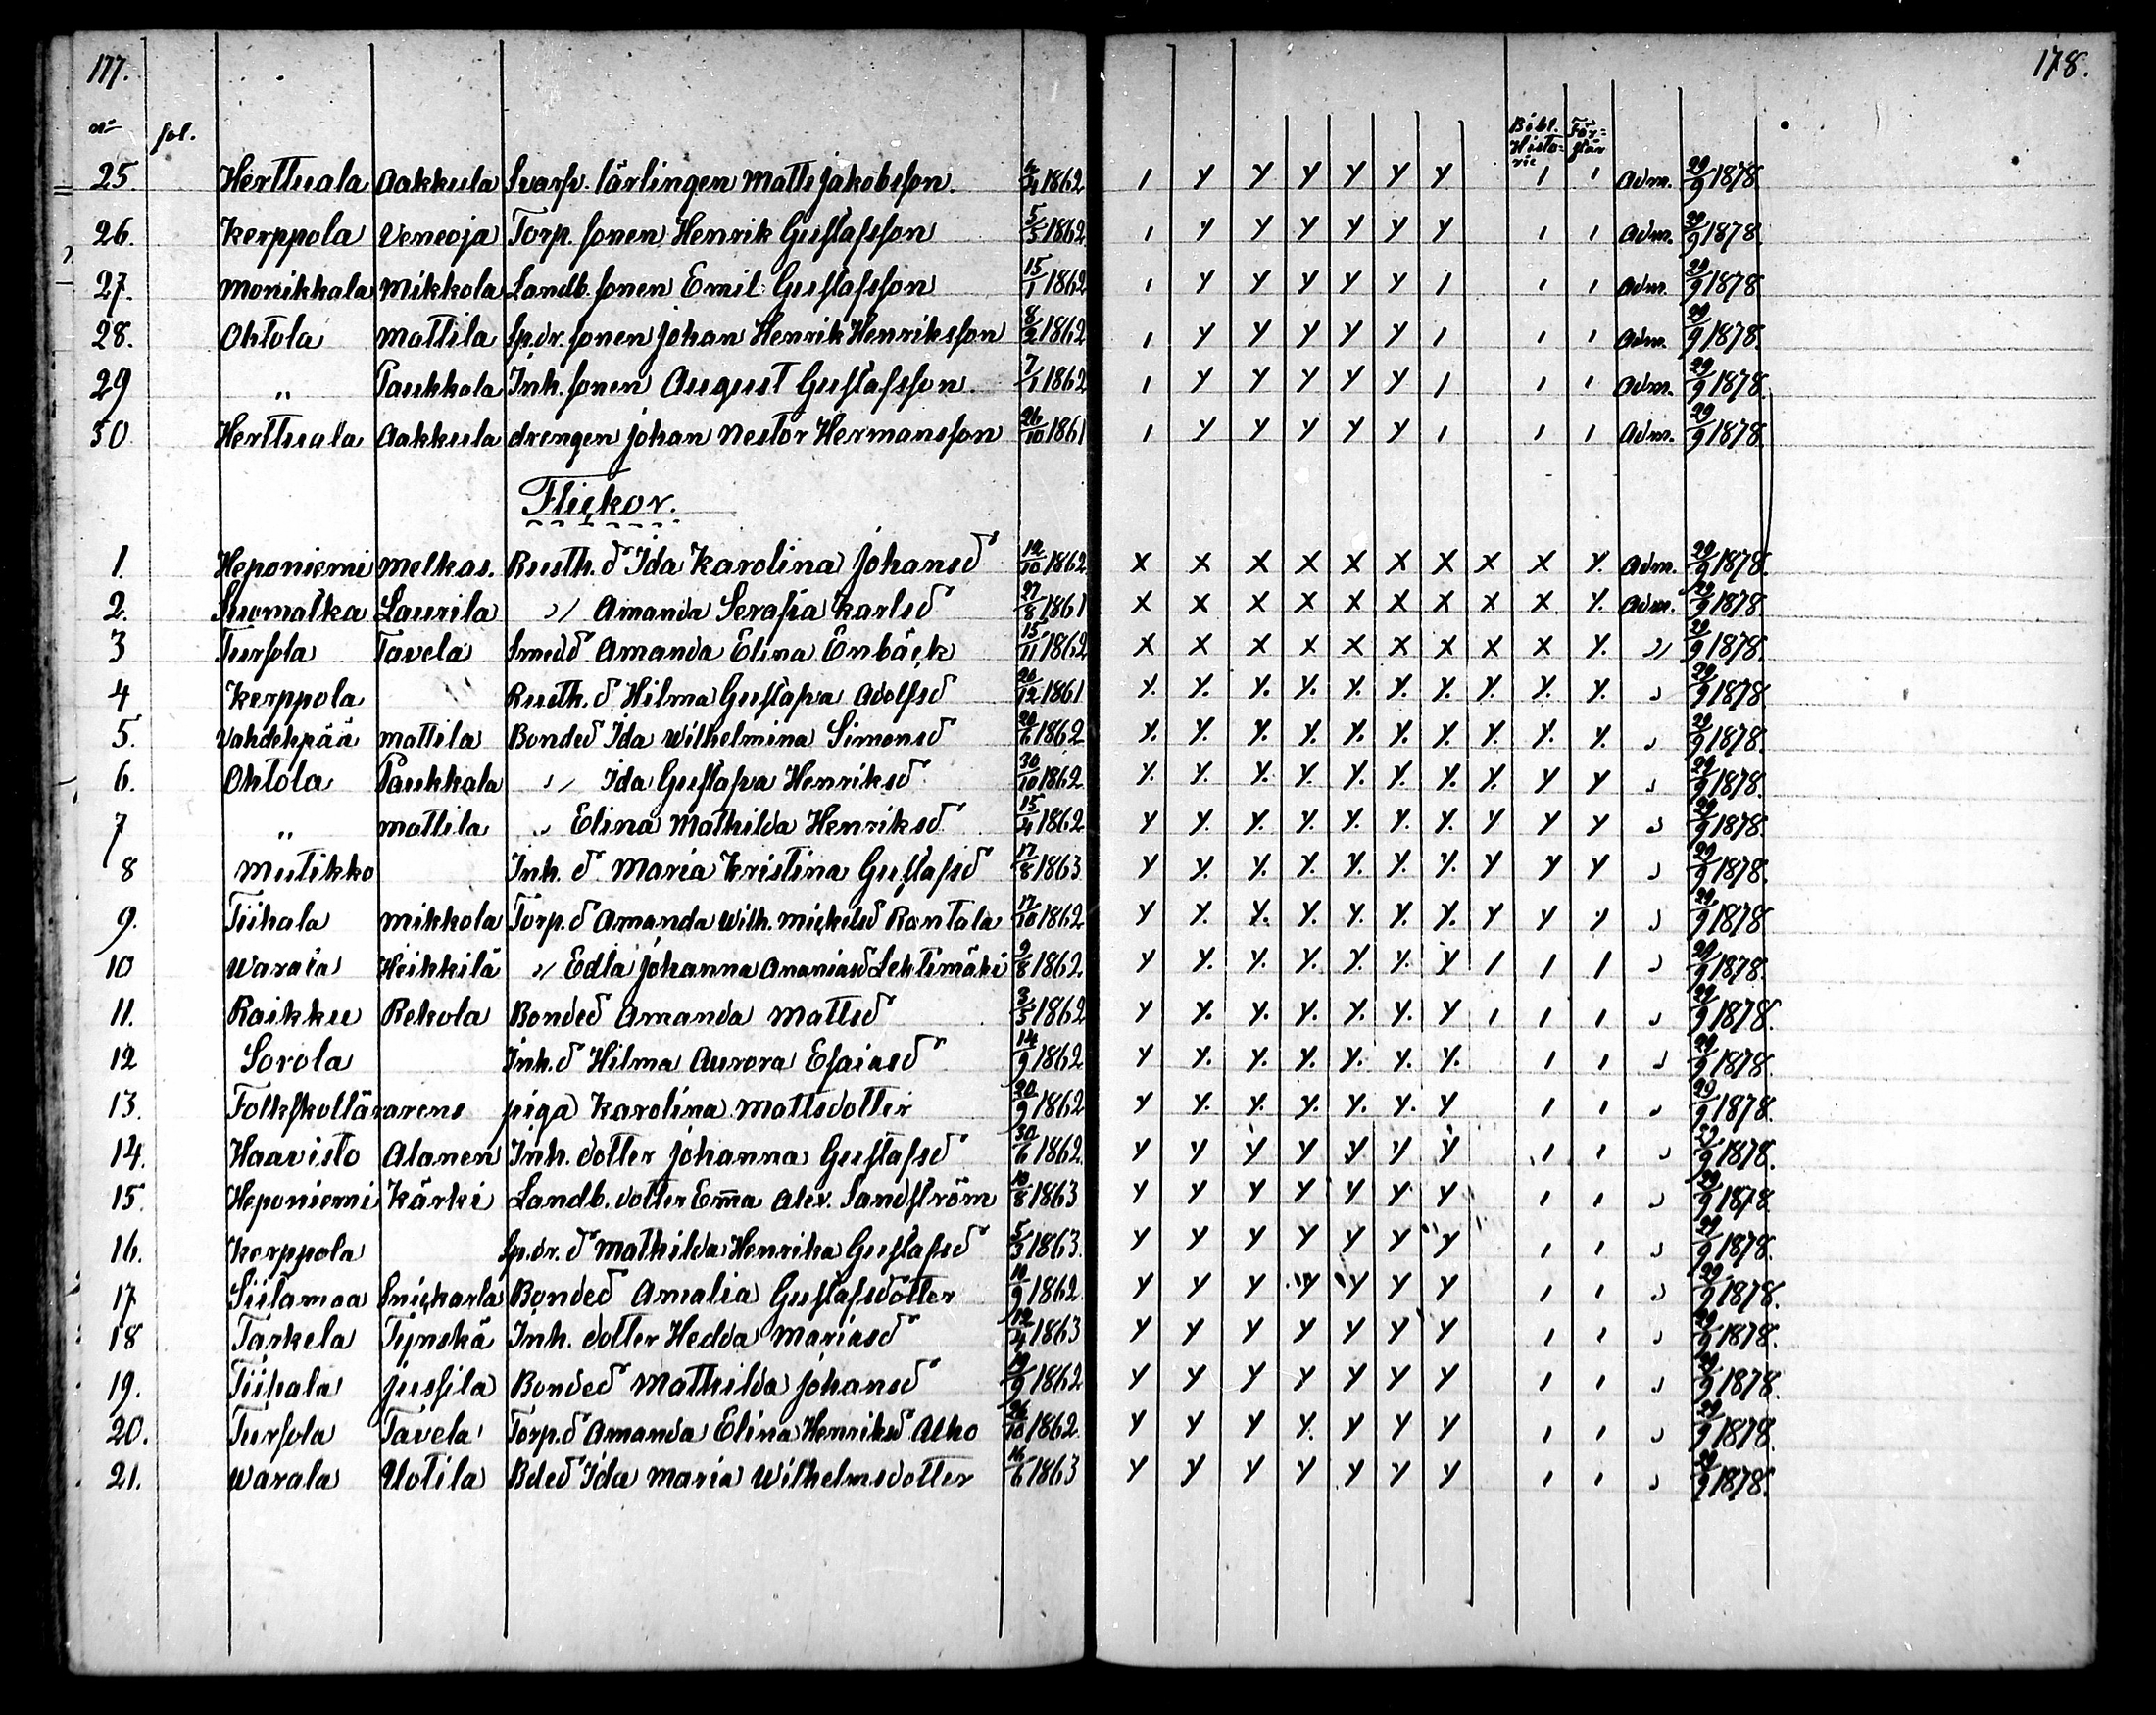 177.
178.
No fol. Bibl. Historie Förstån
25. Herttuala Aakkula Svarfv. lärlingen Matts Jakobsson 6/4 1862 ı y y y y y y ı ı Adm. 29/9 1878.
26. Kerppola Veneoja Torp. sonen Henrik Gustafsson 5/5 1862 ı y y y y y y ı ı Adm. 29/9 1878
27. Monikkala Mikkola Landb. sonen Emil Gustafsson 15/1 1862 ı y y y y y ı ı ı Adm. 29/9 1878
28. Ohtola Mattila Sp.dr. sonen Johan Henrik Henriksson 8/2 1862 ı y y y y y ı ı ı Adm. 29/9 1878.
29 " Paukkola Inh. sonen August Gustafsson. 7/1 1862 ı y y y y y ı ı ı Adm. 29/9 1878.
30 Herttuala Aakkula drengen Johan Nestor Hermansson 26/10 1861 ı y y y y y ı ı ı Adm. 29/9 1878.
Flickor.
1. Heponiemi Melkas. Rusth. d Ida Karolina Johansd 12/10 1862 x x x x x x x x x y. Adm. 29/9 1878.
2. Suomalka Laurila " Amanda Serafia Karlsd 27/8 1861 x x x x x x x x x y. Adm. 29/9 1878
3 Tursola Tavela Smedd Amanda Elina Enbäck 15/11 1862 x x x x x x x x x y. " 29/9 1878.
4 Kerppola Rusth. d Hilma Gustafva Adolfsd 20/12 1861 y. y. y. y. y. y. y. y. y. y. " 29/9 1878.
5. Vahdekpää Mattila Bonded Ida Wilhelmina Simonsd 20/6 1862 y. y. y. y. y. y. y. y. y. y. " 29/9 1878.
6. Ohtola Paukkala " Ida Gustafva Henriksd 30/10 1862 y. y. y. y. y. y. y. y. y y " 29/9 1878.
7 " Mattila " Elina Mathilda Henriksd 15/4 1862 y y. y. y. y. y. y. y y y " 29/9 1878.
8 Mutikko Inh. d Maria Kristina Gustafsd 17/8 1863 y y. y. y. y. y. y. y y y " 29/9 1878.
9. Tiihala Mikkola Torp. d Amanda Wilh. Mickelsd Rantala 17/10 1862 y y. y. y. y. y. y. y y y " 29/9 1878.
10 Warala Heikkilä " Edla Johanna Ananiasd Lehtimäki 9/8 1862 y y. y. y. y. y. y ı ı ı " 29/9 1878.
11. Raikku Rekola Bonded Amanda Mattsd 3/5 1862 y y. y. y. y. y. y ı ı ı " 29/9 1878.
12 Sorola Inh. d Hilma Aurora Esaiasd 14/9 1862 y y. y. y. y. y. y. ı ı " 29/9 1878.
13. Folkskollärarens piga Karolina Mattsdotter 20/9 1862 y y. y. y. y. y. y ı ı " 29/9 1878.
14. Haavisto Alanen Inh. dotter Johanna Gustafsd 30/6 1862 y y y y y y y ı ı " 29/9 1878.
15. Heponiemi Kärki Landb. dotter Em̄a Alex. Sandström 10/8 1863 y y y y y y y ı ı " 29/9 1878
16. Kerppola Sp.dr. d Mathilda Henrika Gustafsd 5/3 1863 y y y y y y y ı ı " 29/9 1878.
17 Siilamaa Snickarla Bonded Amalia Gustafsdotter 10/9 1862 y y y y y y y ı ı " 29/9 1878.
18 Tarkela Tynskä Inh. dotter Hedda Mariasd 12/4 1863 y y y y y y y ı ı " 29/9 1878.
19. Tiihala Jussila Bonded Mathilda Johansd 19/9 1862 y y y y y y y ı ı " 29/9 1878.
20. Tursola Tavela Torp.d Amanda Elina Henriksd Alho 26/10 1862 y y y y. y y y ı ı " 29/9 1878.
21. Warala Uotila Bded Ida Maria Wilhelmsdotter 16/6 1863 y y y y y y y ı ı " 29/9 1878.